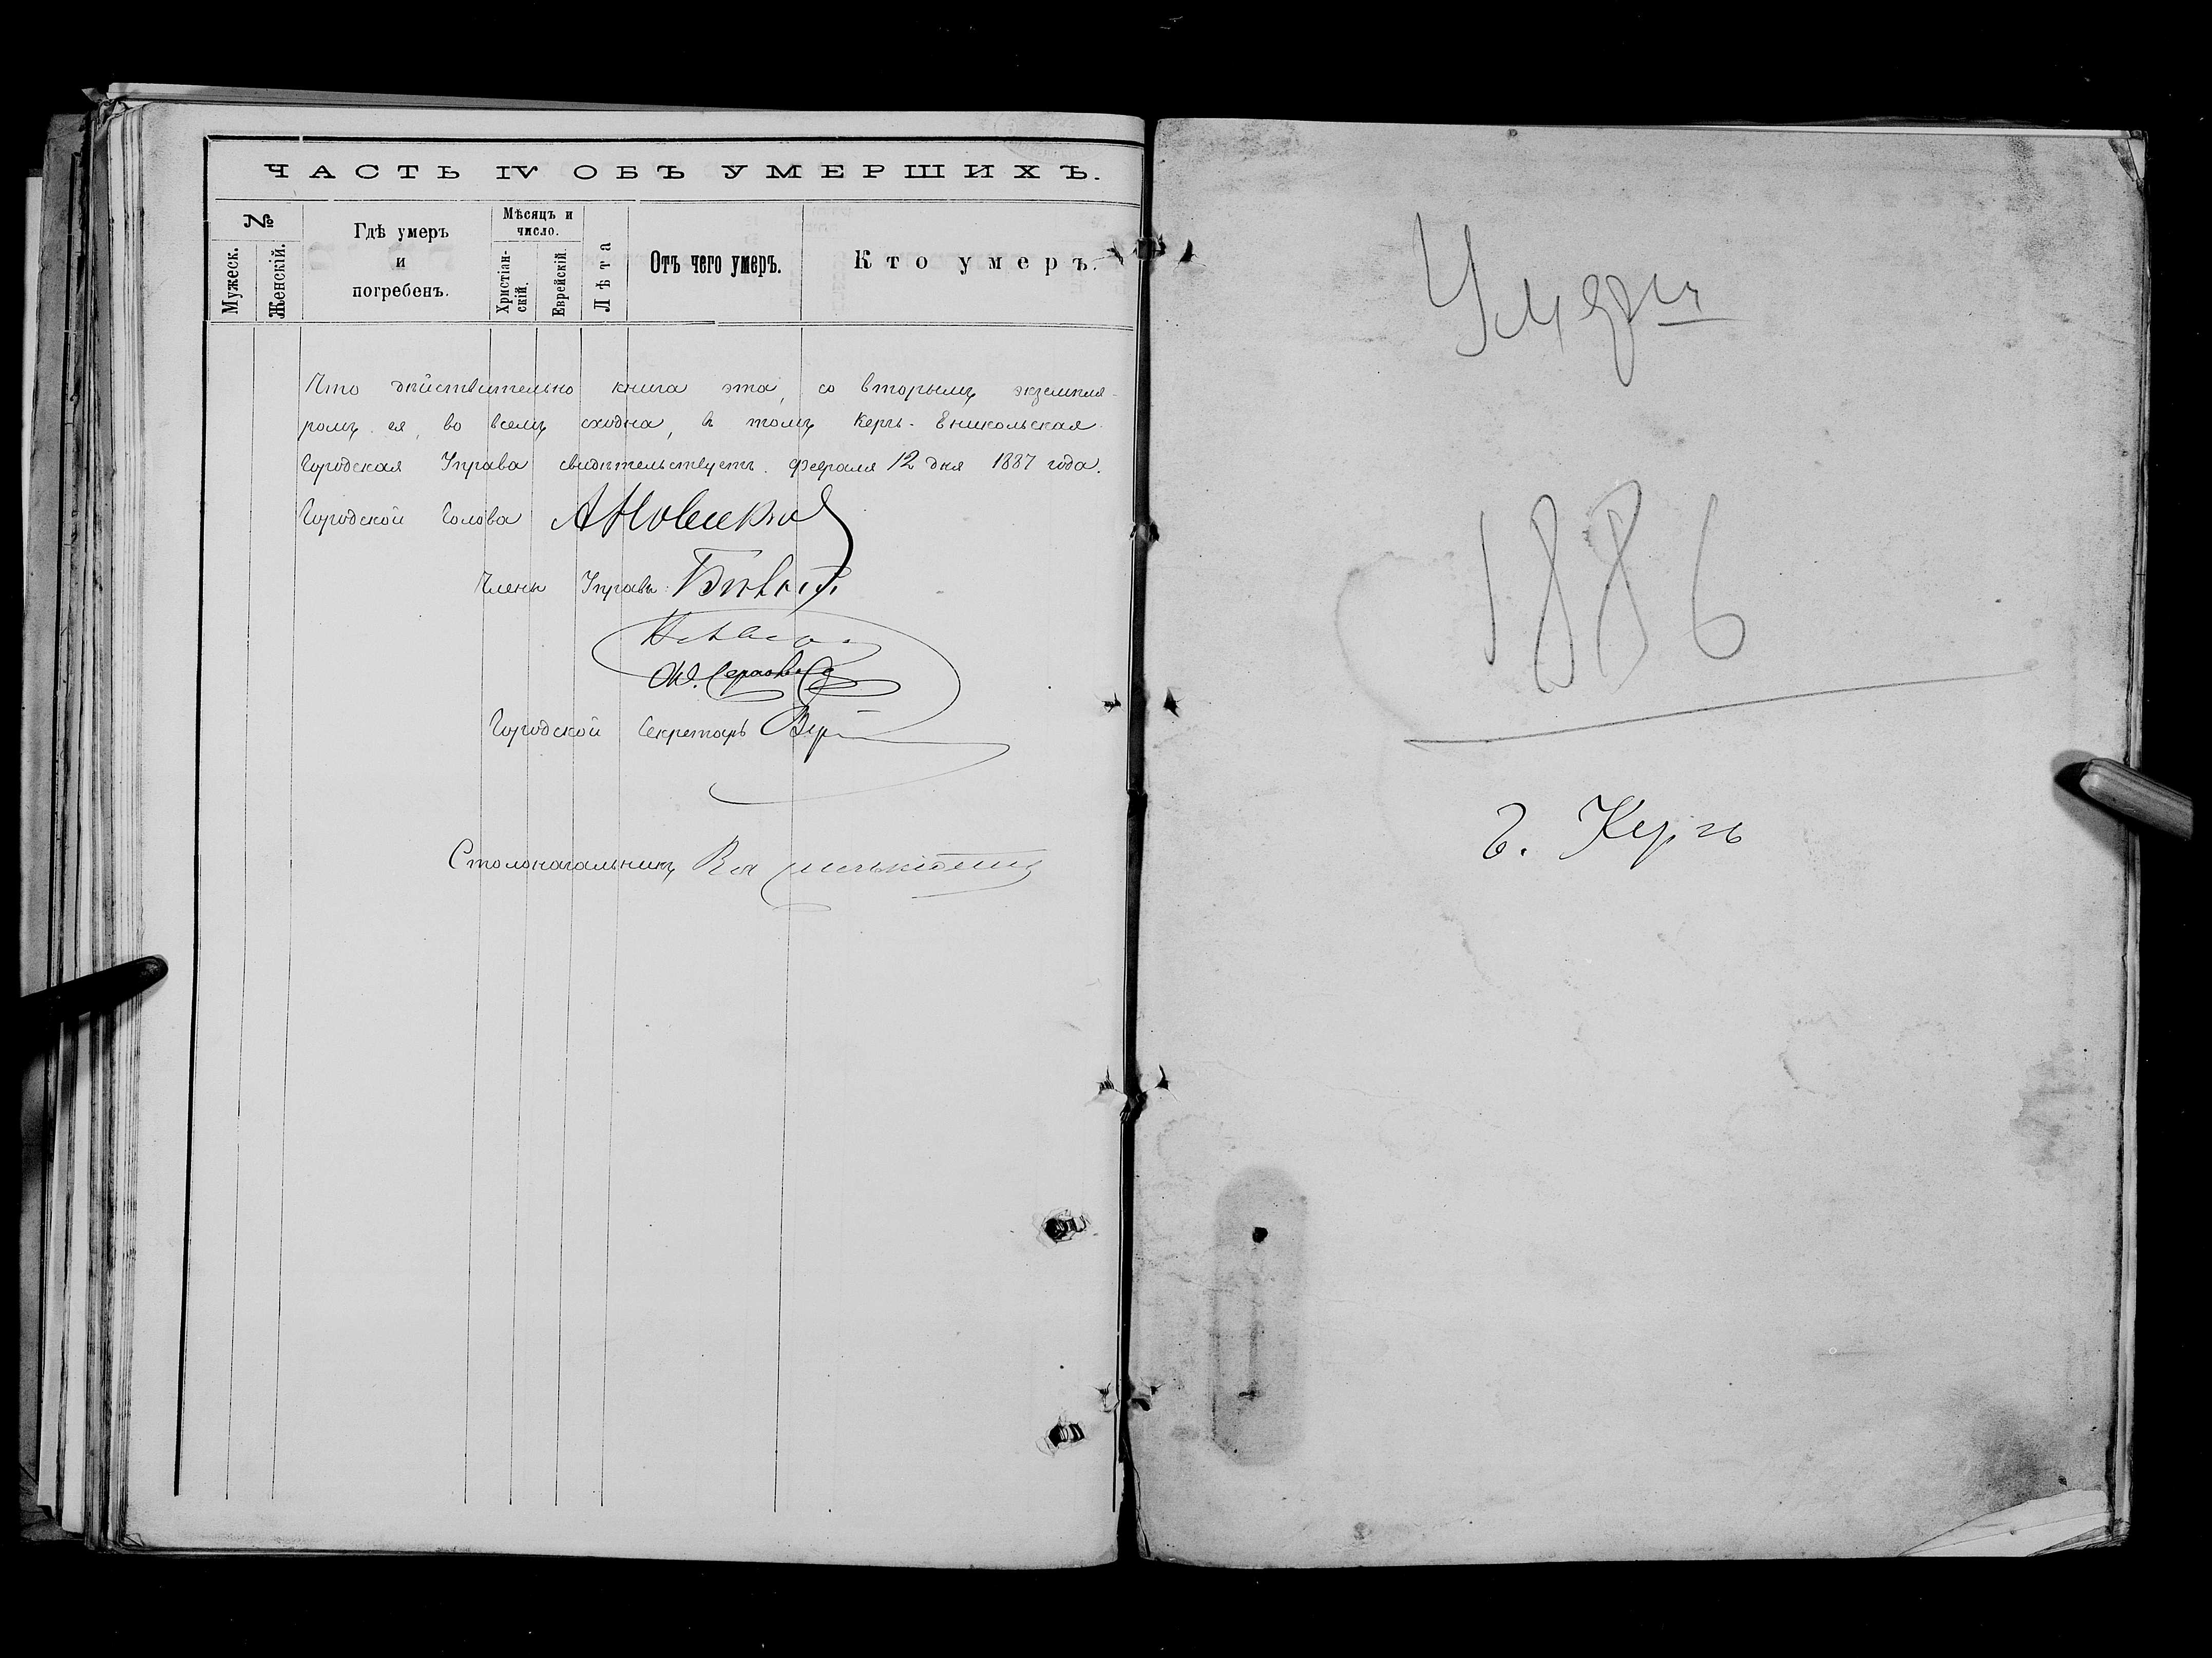 ЧАСТЬ IV ОБЪ УМЕРШИХЪ.
№
Мужеск.
Женскій.
Гдѣ умеръ
и
погребенъ.
Мѣсяцъ и
число.
Христіан-
скій.
Еврейскій.
Лѣта
Отъ чего умеръ.
Кто умеръ.
Что дѣйствительно книга эта, со вторымъ экземпля-
ромъ ея, во всемъ сходна, въ томъ Керчь-Еникольская
Городская Управа свидѣтельствуетъ. Февраля 12 дня 1887 года.
Городской Голова АНовиковъ
Члены Управы:
Городской Секретарь
Столоначальникъ
1886
г. Керчь